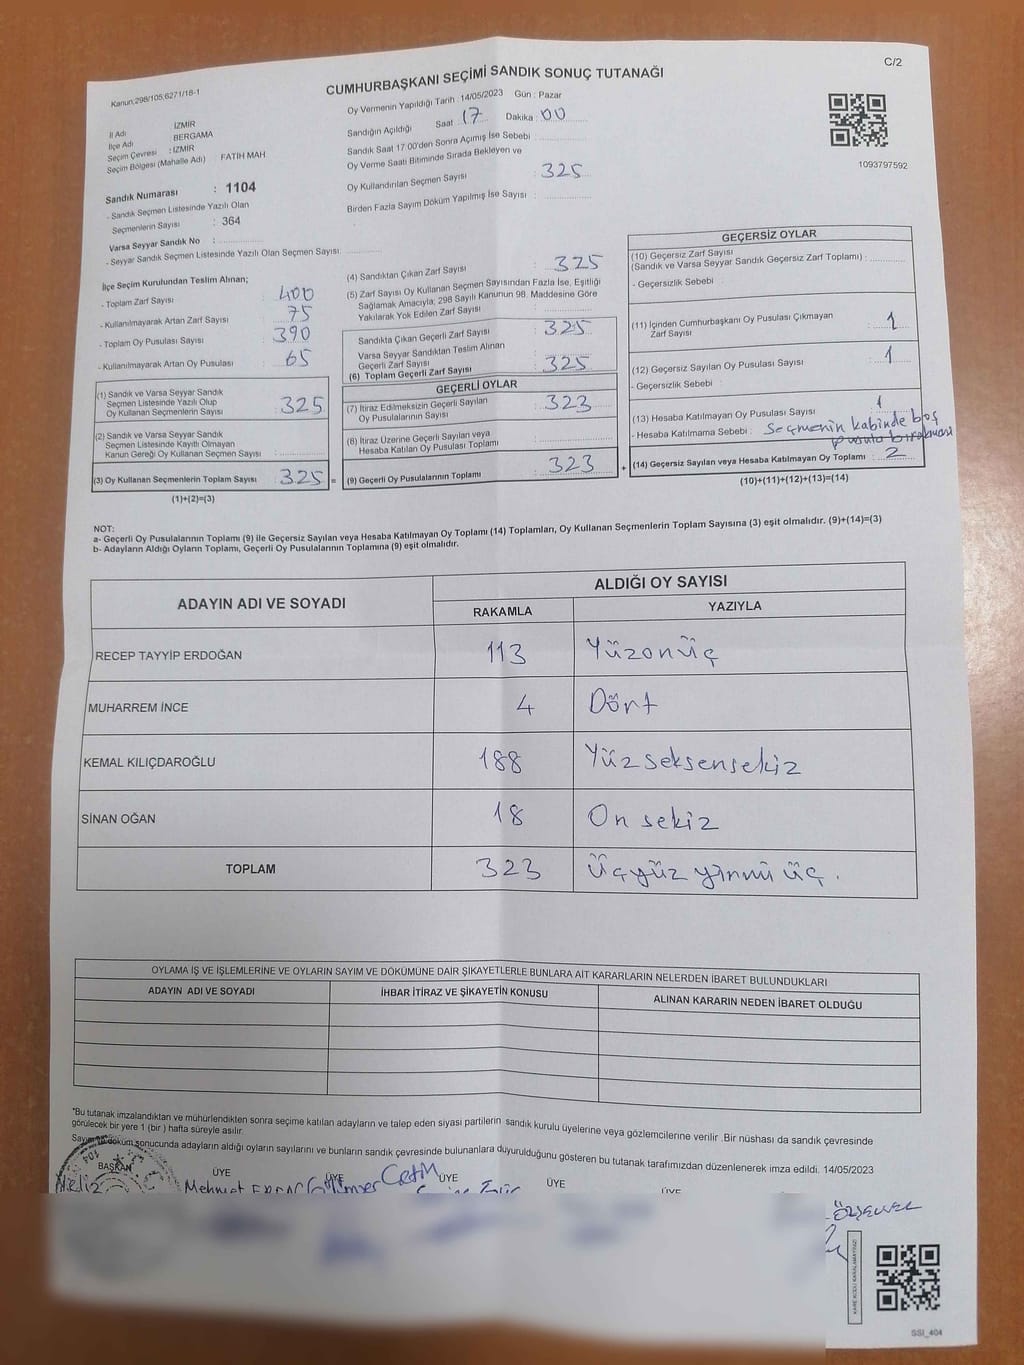 C/2
Kanun,298/105,6271/18-1
CUMHURBAŞKANI SEÇİMİ SANDIK SONUÇ TUTANAĞI
1093797592
İl Adı : İZMİR
İlçe Adı : BERGAMA
Seçim Çevresi : İZMİR
Seçim Bölgesi (Mahalle Adı) FATİH MAH
Sandık Numarası : 1104
- Sandık Seçmen Listesinde Yazılı Olan
Seçmenlerin Sayısı : 364
Varsa Seyyar Sandık No :
- Seyyar Sandık Seçmen Listesinde Yazılı Olan Seçmen Sayısı:
Oy Vermenin Yapıldığı Tarih : 14/05/2023 Gün : Pazar
Sandığın Açıldığı Saat 17 Dakika 00
Sandık Saat 17:00'den Sonra Açımış İse Sebebi
Oy Verme Saati Bitiminde Sırada Bekleyen ve
Oy Kullandırılan Seçmen Sayısı : 325
Birden Fazla Sayım Döküm Yapılmış İse Sayısı :
İlçe Seçim Kurulundan Teslim Alınan;
- Toplam Zarf Sayısı : 400
- Kullanılmayarak Artan Zarf Sayısı : 75
- Toplam Oy Pusulası Sayısı : 390
- Kullanılmayarak Artan Oy Pusulası : 65
(1) Sandık ve Varsa Seyyar Sandık
Seçmen Listesinde Yazılı Olup
Oy Kullanan Seçmenlerin Sayısı : 325
(2) Sandık ve Varsa Seyyar Sandık
Seçmen Listesinde Kayıtlı Olmayan
Kanun Gereği Oy Kullanan Seçmen Sayısı :
(3) Oy Kullanan Seçmenlerin Toplam Sayısı : 325 =
(1)+(2)=(3)
(4) Sandıktan Çıkan Zarf Sayısı : 325
(5) Zarf Sayısı Oy Kullanan Seçmen Sayısından Fazla İse, Eşitliği
Sağlamak Amacıyla; 298 Sayılı Kanunun 98. Maddesine Göre
Yakılarak Yok Edilen Zarf Sayısı :
Sandıkta Çıkan Geçerli Zarf Sayısı : 325
Varsa Seyyar Sandıktan Teslim Alınan
Geçerli Zarf Sayısı
(6) Toplam Geçerli Zarf Sayısı : 325
GEÇERLİ OYLAR
(7) İtiraz Edilmeksizin Geçerli Sayılan
Oy Pusulalarının Sayısı : 323
(8) İtiraz Üzerine Geçerli Sayılan veya
Hesaba Katılan Oy Pusulası Toplamı :
(9) Geçerli Oy Pusulalarının Toplamı : 323 +
GEÇERSİZ OYLAR
(10) Geçersiz Zarf Sayısı
(Sandık ve Varsa Seyyar Sandık Geçersiz Zarf Toplamı) :
- Geçersizlik Sebebi :
(11) İçinden Cumhurbaşkanı Oy Pusulası Çıkmayan
Zarf Sayısı : 1
(12) Geçersiz Sayılan Oy Pusulası Sayısı : 1
- Geçersizlik Sebebi :
(13) Hesaba Katılmayan Oy Pusulası Sayısı : 1
- Hesaba Katılmama Sebebi : Seçmenin kabinde boş
pusula bırakması
(14) Geçersiz Sayılan veya Hesaba Katılmayan Oy Toplamı : 2
(10)+(11)+(12)+(13)=(14)
NOT:
a- Geçerli Oy Pusulalarının Toplamı (9) ile Geçersiz Sayılan veya Hesaba Katılmayan Oy Toplamı (14) Toplamları, Oy Kullanan Seçmenlerin Toplam Sayısına (3) eşit olmalıdır. (9)+(14)=(3)
b- Adayların Aldığı Oyların Toplamı, Geçerli Oy Pusulalarının Toplamına (9) eşit olmalıdır.
ADAYIN ADI VE SOYADI ALDIĞI OY SAYISI
RAKAMLA YAZIYLA
RECEP TAYYİP ERDOĞAN 113 Yüzonüç
MUHARREM İNCE 4 Dört
KEMAL KILIÇDAROĞLU 188 Yüzseksensekiz
SİNAN OĞAN 18 On sekiz
TOPLAM 323 Üçyüz yirmi üç.
OYLAMA İŞ VE İŞLEMLERİNE VE OYLARIN SAYIM VE DÖKÜMÜNE DAİR ŞİKAYETLERLE BUNLARA AİT KARARLARIN NELERDEN İBARET BULUNDUKLARI
ADAYIN ADI VE SOYADI İHBAR İTİRAZ VE ŞİKAYETİN KONUSU ALINAN KARARIN NEDEN İBARET OLDUĞU
*Bu tutanak imzalandıktan ve mühürlendikten sonra seçime katılan adayların ve talep eden siyasi partilerin sandık kurulu üyelerine veya gözlemcilerine verilir .Bir nüshası da sandık çevresinde
görülecek bir yere 1 (bir ) hafta süreyle asılır.
Sayım ve döküm sonucunda adayların aldığı oyların sayılarını ve bunların sandık çevresinde bulunanlara duyurulduğunu gösteren bu tutanak tarafımızdan düzenlenerek imza edildi. 14/05/2023
BAŞKAN ÜYE ÜYE ÜYE ÜYE ÜYE
Mehmet
KARE KODU KARALAMAYINIZ!
SSI_404